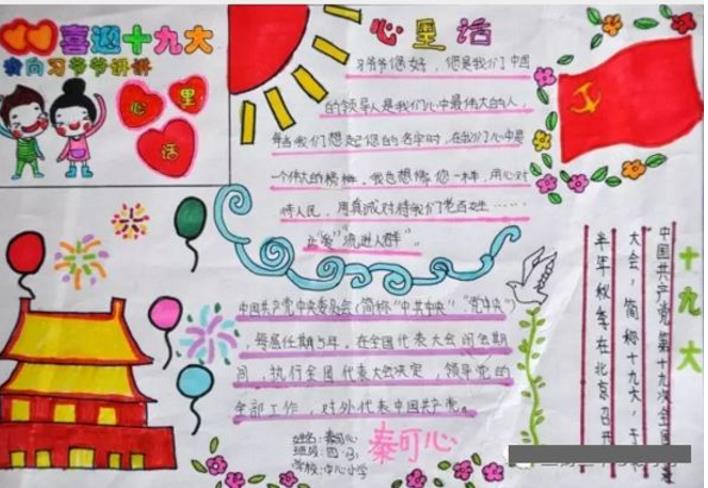 喜迎十九大
我向习爷爷讲讲
心里
话
心里话
习爷爷您好，您是我们中国
的领导人是我们心中最伟大的人，
每当我们想起您的名字时，在我们心中是
一个伟大的榜样，我也想像您一样，用心对
待人民，用真诚对待我们老百姓……
让“爱”流进人群”。
中国共产党中央委员会（简称“中共中央”“党中央”）
，每届任期5年。在全国代表大会闭会期
间，执行全国代表大会决定，领导党的
全部工作，对外代表中国共产党。
姓名：秦可心
班级：四.3
学校：中心小学
秦可心
十九大
中国共产党第十九次全国
大会，简称十九大，于
半年秋季在北京召开